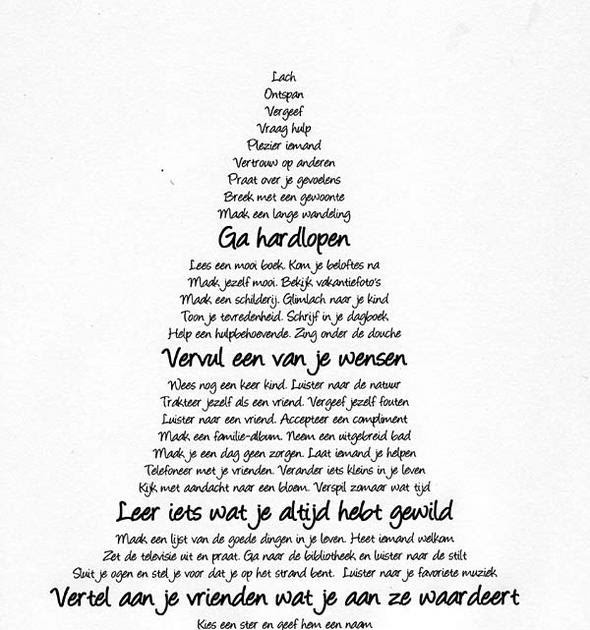 Lach
Ontspan
Vergeef
Vraag hulp
Plezier iemand
Vertrouw op anderen
Praat over je gevoelens
Breek met een gewoonte
Maak een lange wandeling
Ga hardlopen
Lees een mooi boek. Kom je beloftes na
Maak jezelf mooi. Bekijk vakantiefoto's
Maak een schilderij. Glimlach naar je kind
Toon je tevredenheid. Schrijf in je dagboek
Help een hulpbehoevende. Zing onder de douche
Vervul een van je wensen
Wees nog een keer kind. Luister naar de natuur
Trakteer jezelf als een vriend. Vergeef jezelf fouten
Luister naar een vriend. Accepteer een compliment
Maak een familie-album. Neem een uitgebreid bad
Maak je een dag geen zorgen. Laat iemand je helpen
Telefoneer met je vrienden. Verander iets kleins in je leven
Kijk met aandacht naar een bloem. Verspil zomaar wat tijd
Leer iets wat je altijd hebt gewild
Maak een lijst van de goede dingen in je leven. Heet iemand welkom
Zet de televisie uit en praat. Ga naar de bibliotheek en luister naar de stilt
Sluit je ogen en stel je voor dat je op het strand bent. Luister naar je favoriete muziek
Vertel aan je vrienden wat je aan ze waardeert
Kies een ster en geef hem een naam